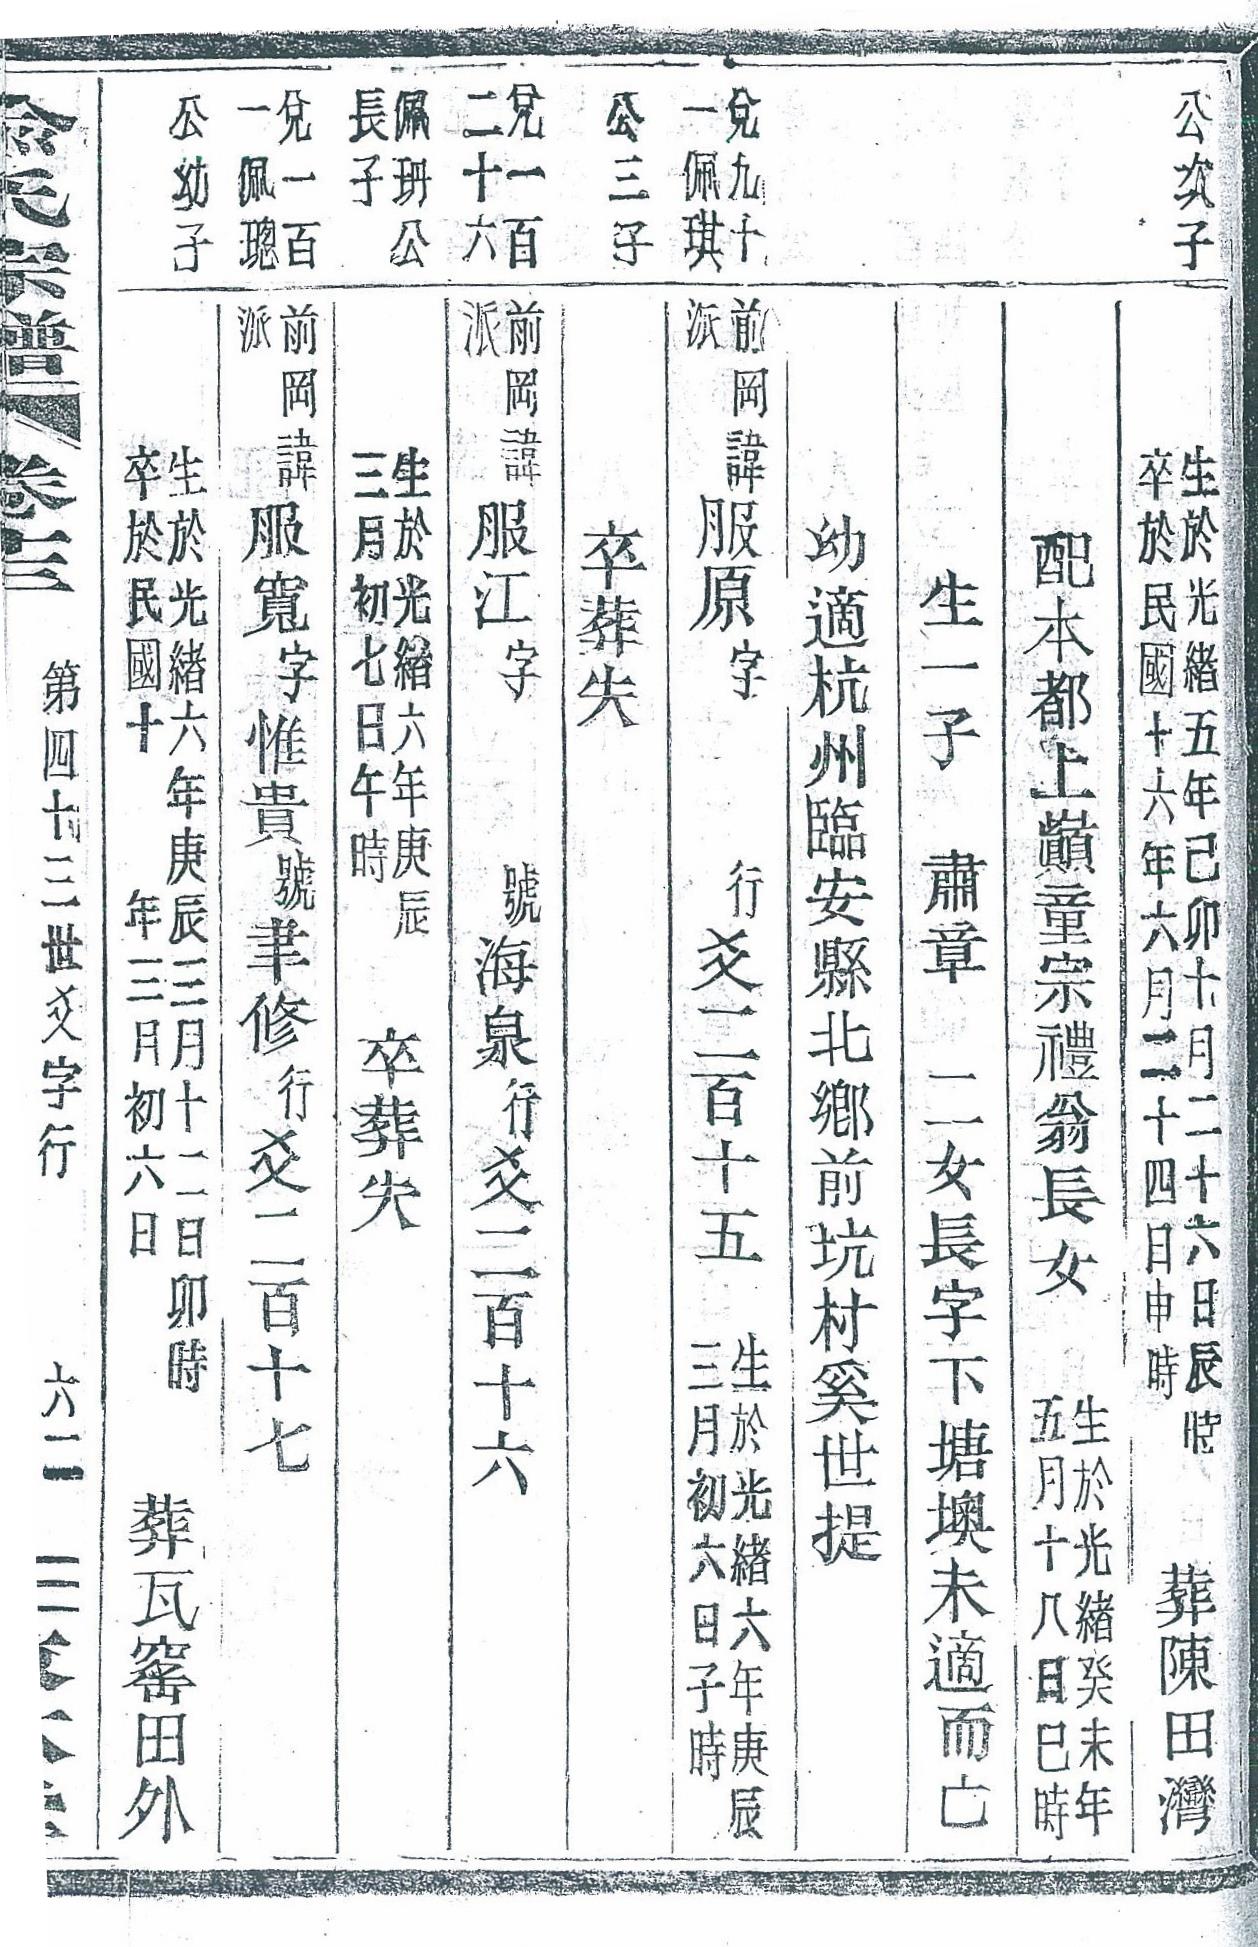 公次子
生於光緒五年己卯十月二十六日辰時
卒於民國十六年六月二十四日申時
葬陳田灣
配本都上巔童宗禮翁長女
生於光緒癸未年
五月十八日巳時
生一子 肅章 二女長字下塘墺未適而亡
幼適杭州臨安縣北鄉前坑村奚世提
兌九十
一佩琪
前岡諱服原字 行爻二百十五
派
生於光緒六年庚辰
三月初六日子時
公三子
卒葬失
兌一百
二十六
前岡諱服江字 號海泉行爻二百十六
派
佩玥公
長子
生於光緒六年庚辰
三月初七日午時
卒葬失
兌一百
一佩璁
前岡諱服寬字惟貴號聿修行爻二百十七
派
公幼子
生於光緒六年庚辰三月十二日卯時
卒於民國十 年三月初六日
葬瓦窰田外
氏宗譜 卷三 第四十三世爻字行 六二